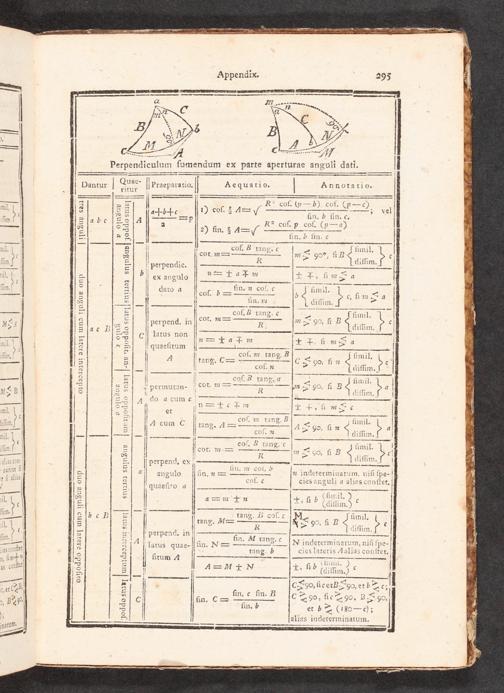 Appendix.
295
a
m n
C
B
b
M
N
90
c
A
m
a n
C
B
90
c
A
b
N
M
Perpendiculum sumendum ex parte aperturae anguli dati.
Dantur
Quaeritur
Praeparatio.
Aequatio.
Annotatio.
tres anguli
a b c
latus oppos. angulo a
A
a+b+c / 2 = p
1) cos. ½ A = √ R² cos. (p—b) cos. (p—c) / sin. b sin. c. ; vel
2) sin. ½ A = √ R² cos. p cos. (p—a) / sin. b sin. c.
duo anguli cum latere intercepto
a c B
angulus tertius
b
perpendic.
ex angulo
dato a
cot. m = cos. B tang. c / R
m ≶ 90°, si B { simil. dissim. } c
n = ± a ∓ m
± ∓, si m ≶ a
cos. b = sin. n cos. c / sin. m
b { simil. dissim. } c, si m ≶ a
latus opposit. angulo c
C
perpend. in
latus non
quaesitum
A
cot. m = cos. B tang. c / R
m ≶ 90, si B { simil. dissim. } c
n = ± a ∓ m
± ∓, si m ≶ a
tang. C = cos. m tang. B / cos. n
C ≶ 90, si n { simil. dissim. } c
latus oppositum angulo a
A
permutando a cum c
et
A cum C
cot. m = cos. B tang. a / R
m ≶ 90, si B { simil. dissim. } a
n = ± c ∓ m
± ∓, si m ≶ c
tang. A = cos. m tang. B / cos. n
A ≶ 90, si n { simil. dissim. } a
duo anguli cum latere opposito
b c B
angulus tertius
a
perpend. ex
angulo
quaesito a
cot. m = cos. B tang. c / R
m ≶ 90, si B { simil. dissim. } c
sin. n = sin. m cos. b / cos. c
n indeterminatum, nisi species anguli a alias constet.
a = m ± n
±, si b { simil. dissim. } c
latus interceptum
A
perpend. in
latus quaesitum A
tang. M = tang. B cos. c / R
M ≶ 90, si B { simil. dissim. } c
sin. N = sin. M tang. c / tang. b
N indeterminatum, nisi species lateris A alias constet.
A = M ± N
±, si b (simil. dissim.) c
latus oppos.
C
sin. C = sin. c sin. B / sin. b
alias indeterminatum.